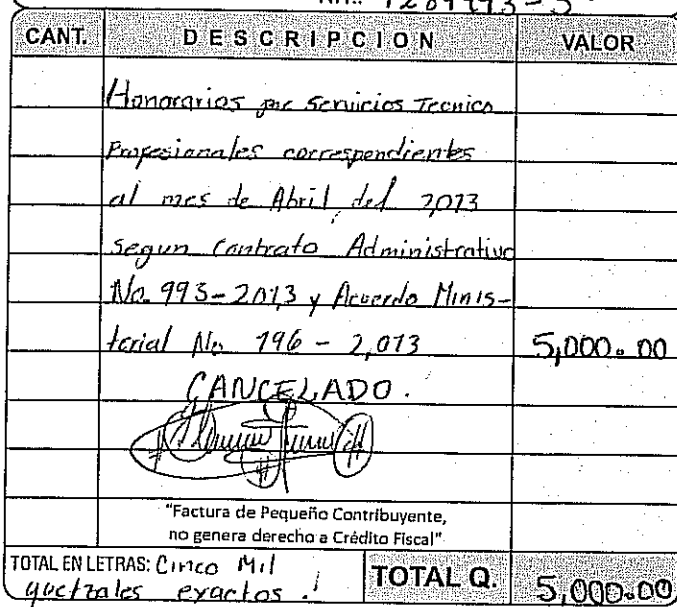 CANT. DESCRIPCION VALOR
Honorarios por Servicios Tecnico
Profesionales correspondientes
al mes de Abril del 2,013
segun Contrato Administrativo
No. 993-2013 y Acuerdo Minis-
terial No. 196 - 2,013 5,000.00
CANCELADO.
"Factura de Pequeño Contribuyente,
no genera derecho a Crédito Fiscal"
TOTAL EN LETRAS: Cinco Mil
quetzales exactos. TOTAL Q. 5,000.00